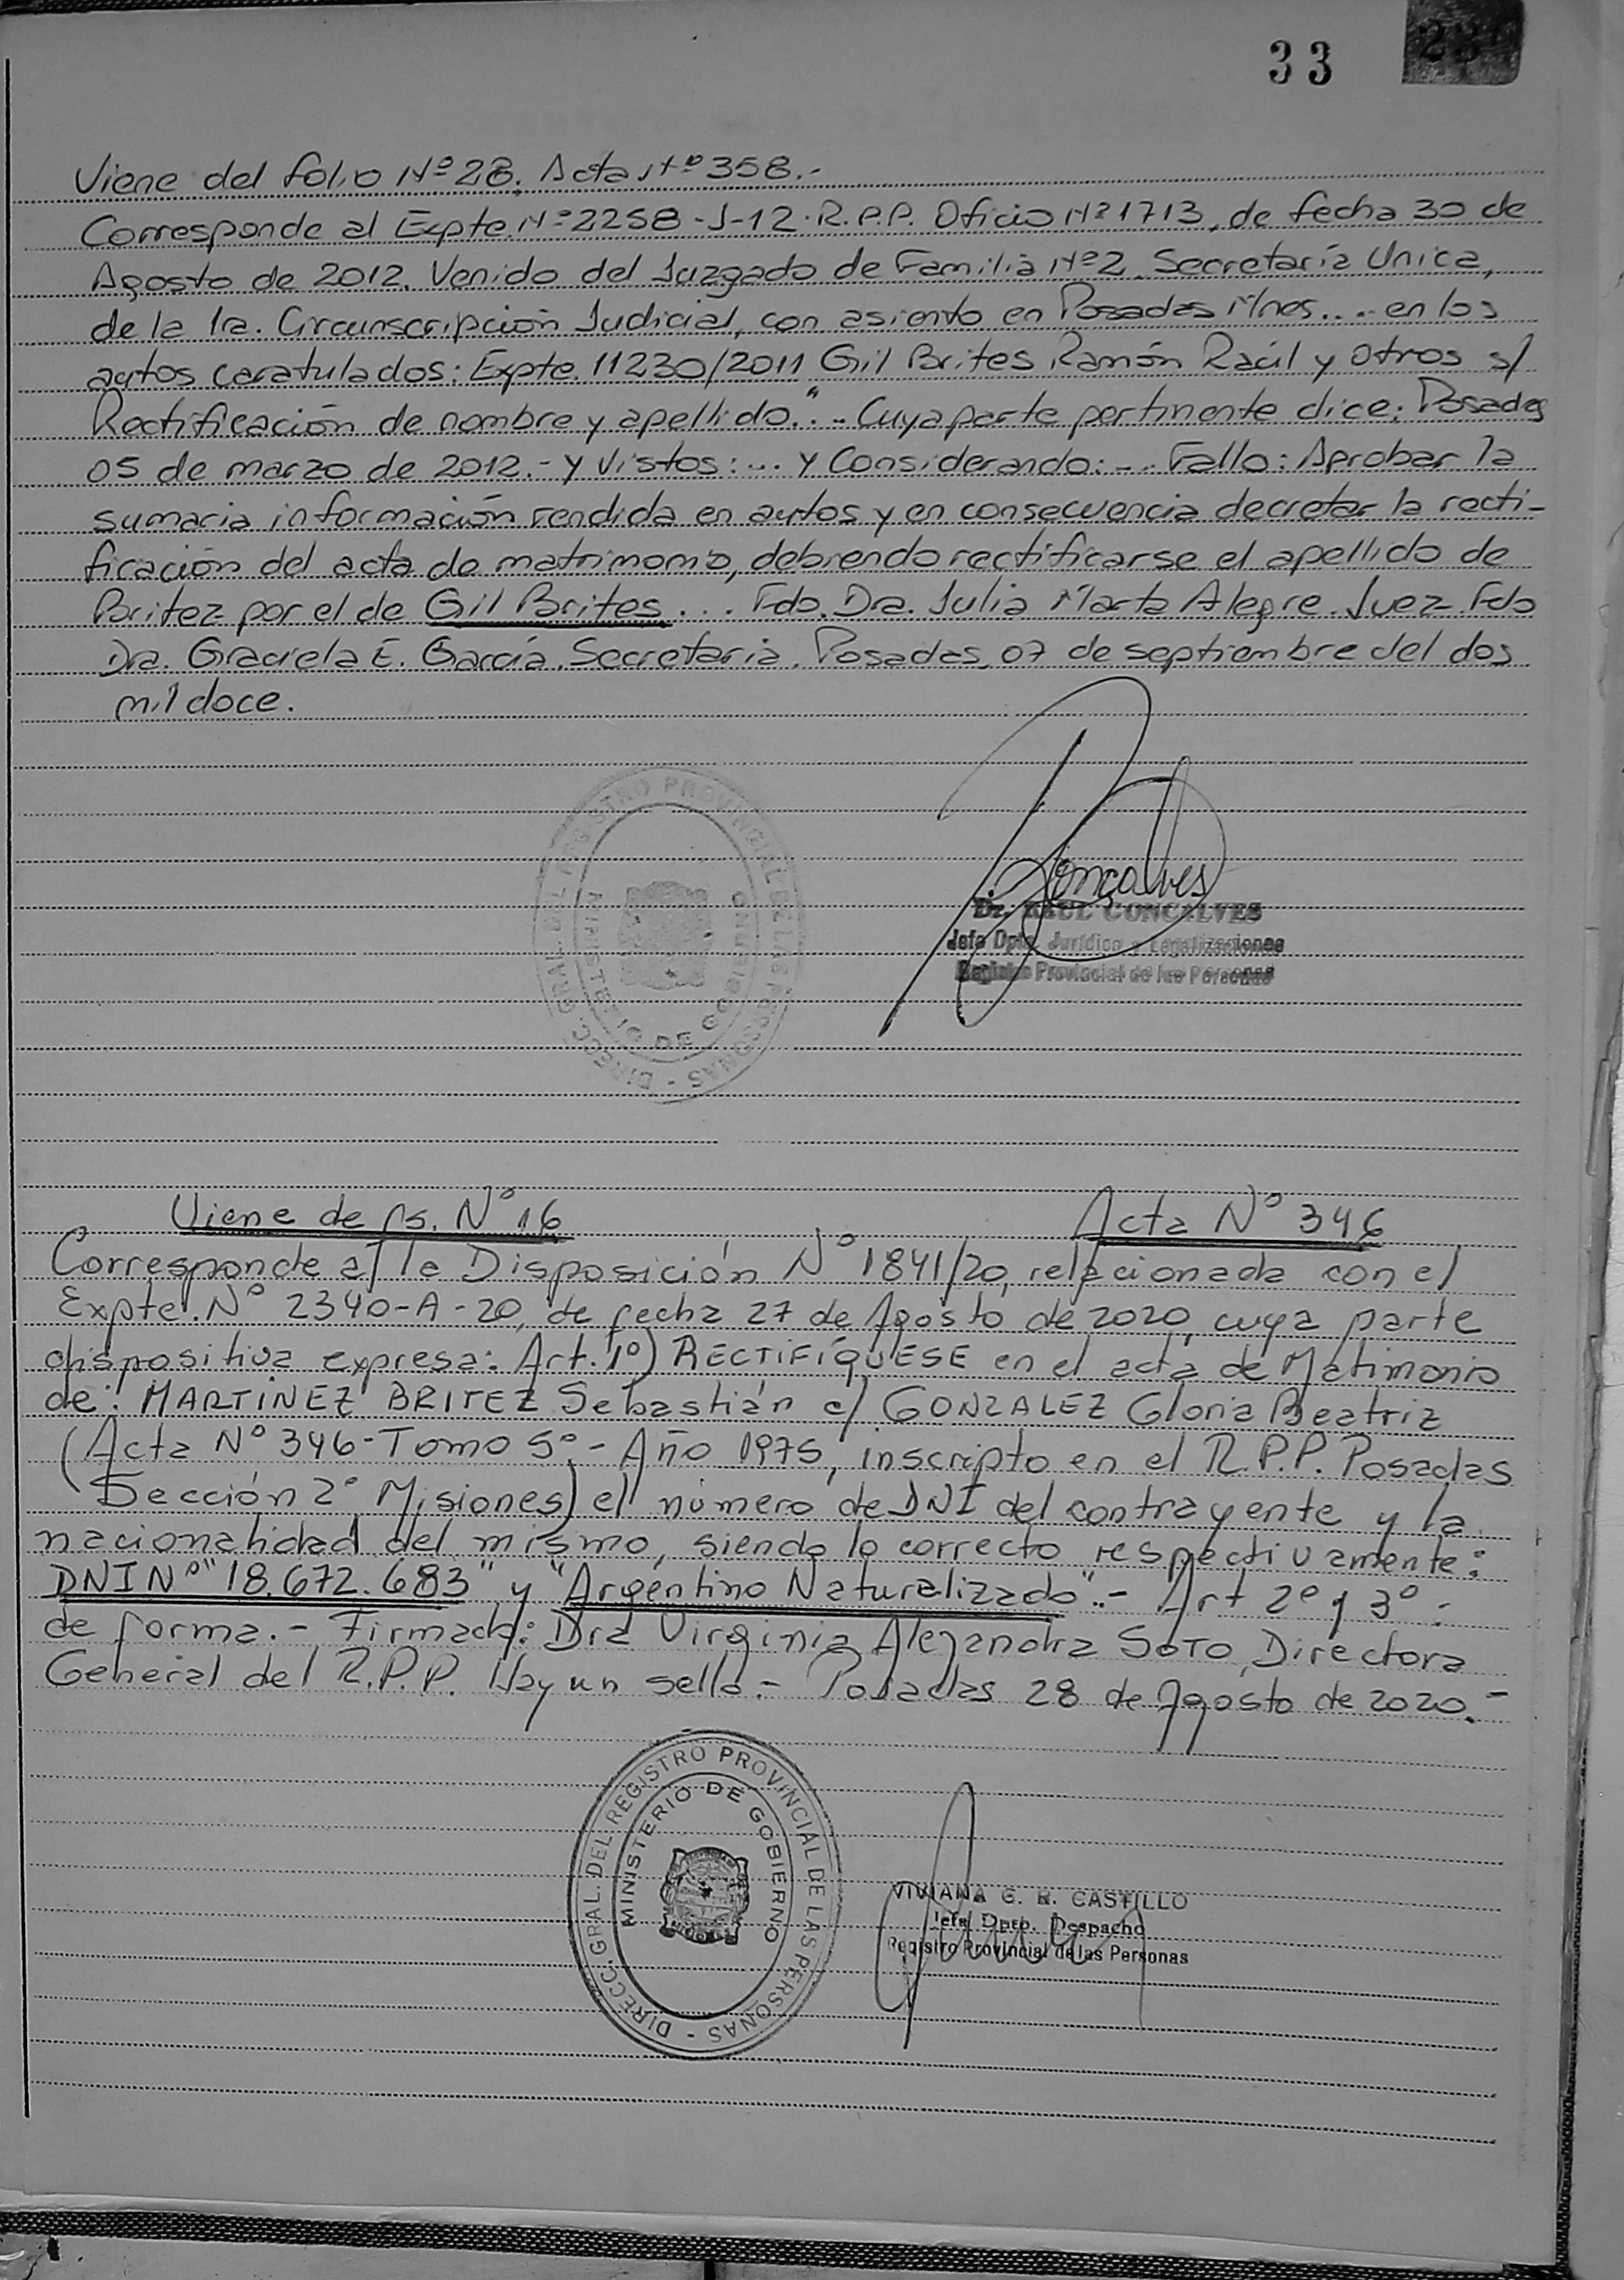 33
Viene del folio Nº 28. Acta Nº 358.-
Corresponde al Expte. Nº 2258-J-12. R.P.P. Oficio Nº 1713, de fecha 30 de
Agosto de 2012. Venido del Juzgado de Familia Nº 2. Secretaría Unica,
de la 1ra. Circunscripción Judicial, con asiento en Posadas Mnes.... en los
autos caratulados: Expte. 11230/2011 Gil Brites Ramón Raúl y Otros s/
Rectificación de nombre y apellido."... Cuya parte pertinente dice: Posadas
05 de marzo de 2012.- y Vistos:... y Considerando:... Fallo: Aprobar la
sumaria información rendida en autos y en consecuencia decretar la recti-
ficación del acta de matrimonio, debiendo rectificarse el apellido de
Britez por el de Gil Brites... Fdo. Dra. Julia Marta Alegre. Juez. Fdo
Dra. Graciela E. García. Secretaria. Posadas, 07 de septiembre del dos
mil doce.
DIRECC. GRAL. DEL REGISTRO PROVINCIAL DE LAS PERSONAS -
MINISTERIO DE GOBIERNO
Gonçalves
Dr. RAUL GONCALVES
Jefe Dpto. Jurídico y Legalizaciones
Registro Provincial de las Personas
Viene de fs. Nº 16 Acta Nº 346
Corresponde a la Disposición Nº 1841/20, relacionada con el
Expte. Nº 2340-A-20, de fecha 27 de Agosto de 2020, cuya parte
dispositiva expresa: Art. 1º) RECTIFÍQUESE en el acta de Matimonio
de: MARTINEZ BRITEZ Sebastián c/ GONZALEZ Gloria Beatriz
(Acta Nº 346-Tomo 5º- Año 1975, inscripto en el R.P.P. Posadas
Sección 2º Misiones) el número de DNI del contrayente y la
nacionalidad del mismo, siendo lo correcto respectivamente:
DNI Nº "18.672.683" y "Argentino Naturalizado".- Art 2º y 3º:
de forma.- Firmado: Dra Virginia Alejandra SOTO, Directora
General del R.P.P. Hay un sello.- Posadas 28 de Agosto de 2020.-
DIRECC. GRAL. DEL REGISTRO PROVINCIAL DE LAS PERSONAS -
MINISTERIO DE GOBIERNO
VIVIANA G. R. CASTILLO
Jefe Dpto. Despacho
Registro Provincial de las Personas